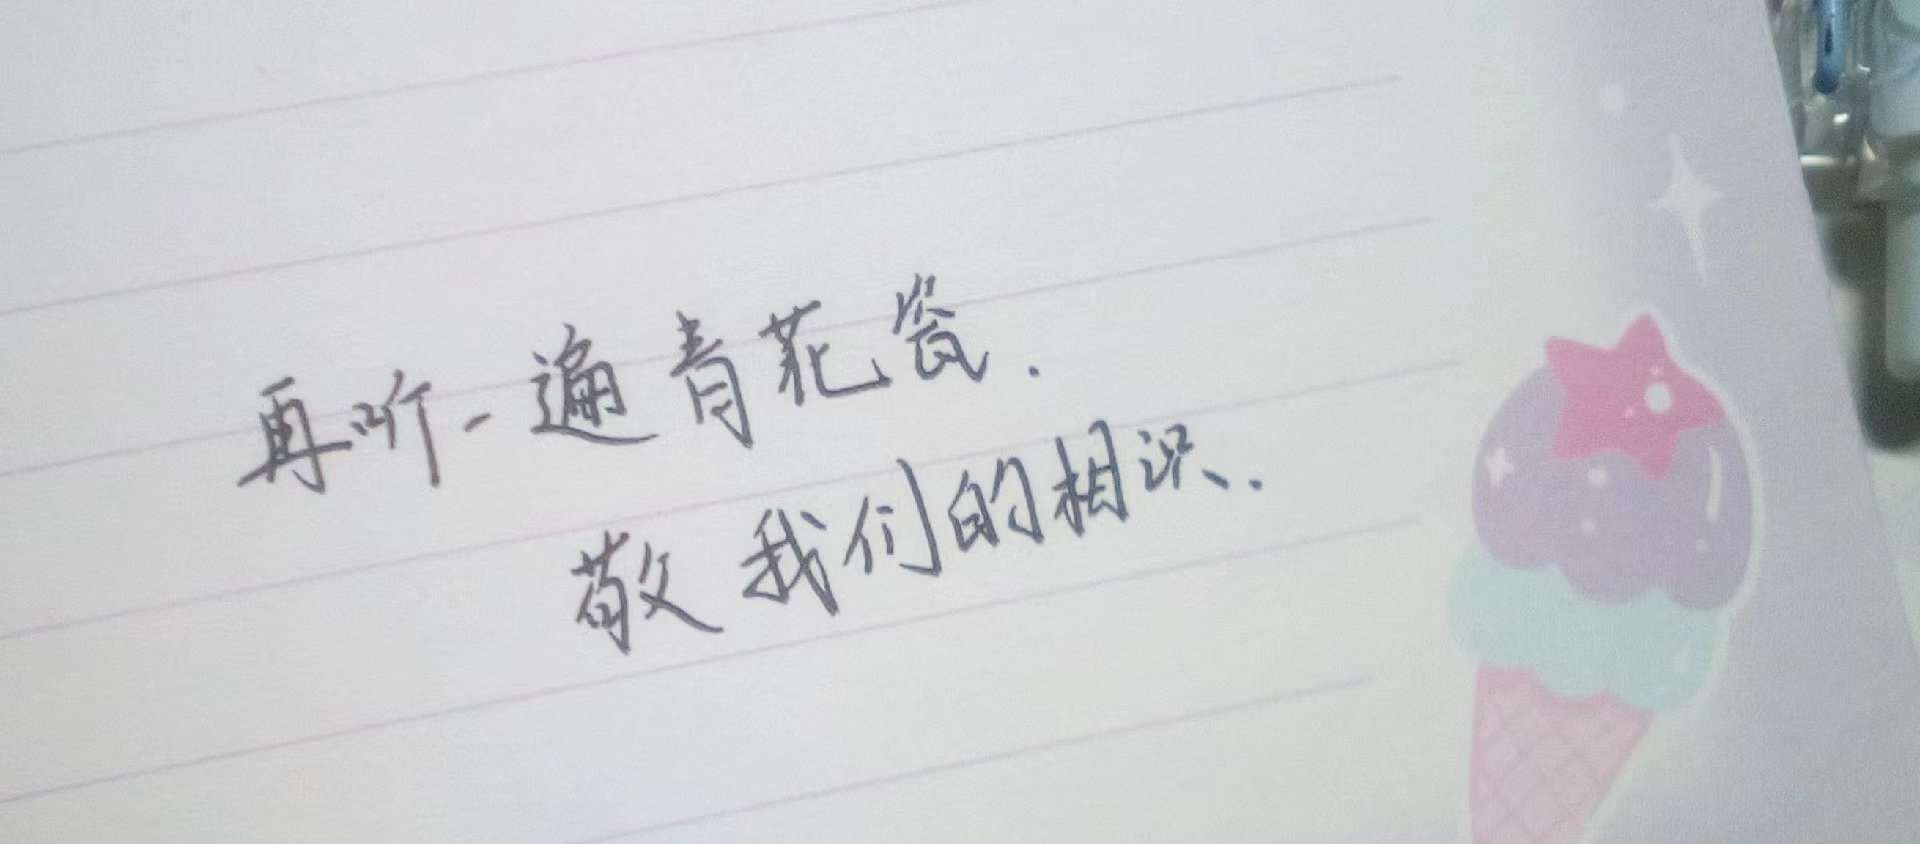 再听一遍青花瓷.
敬我们的相识.